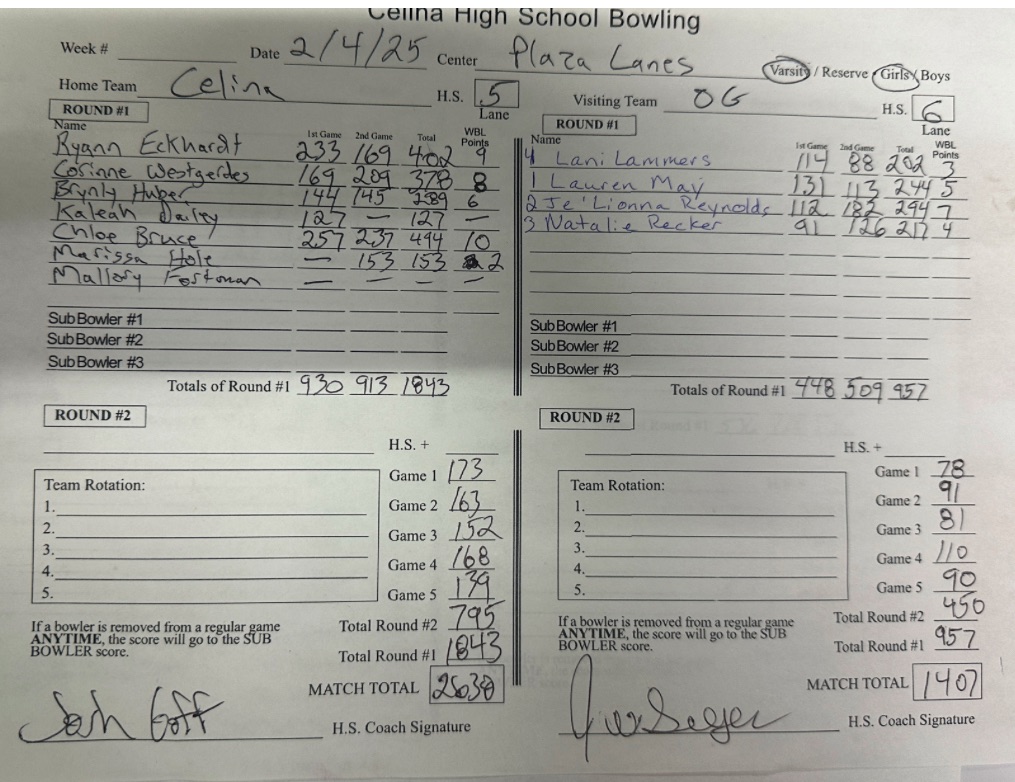 Celina High School Bowling
Week # Date 2/4/25 Center Plaza Lanes Varsity / Reserve / Girls / Boys
Home Team Celina H.S. 5
Lane
ROUND #1
Name 1st Game 2nd Game Total WBL Points
Ryann Eckhardt 233 169 402 9
Corinne Westgerdes 169 209 378 8
Brynly Huber 144 145 289 6
Kaleah 127 — 127 —
Chloe Bruce 257 237 494 10
Marissa Hole — 153 153 2
Mallory Fortman — — — —
Sub Bowler #1
Sub Bowler #2
Sub Bowler #3
Totals of Round #1 930 913 1843
ROUND #2
H.S. +
Team Rotation:
1.
2.
3.
4.
5.
Game 1 173
Game 2 163
Game 3 152
Game 4 168
Game 5 139
Total Round #2 795
Total Round #1 1843
MATCH TOTAL 2638
If a bowler is removed from a regular game
ANYTIME, the score will go to the SUB
BOWLER score.
Josh Goff
H.S. Coach Signature
Visiting Team OG H.S. 6
Lane
ROUND #1
Name 1st Game 2nd Game Total WBL Points
4 Lani Lammers 114 88 202 3
1 Lauren May 131 113 244 5
2 Je'Lionna Reynolds 112 182 294 7
3 Natalie Recker 91 126 217 4
Sub Bowler #1
Sub Bowler #2
Sub Bowler #3
Totals of Round #1 448 509 957
ROUND #2
H.S. +
Team Rotation:
1.
2.
3.
4.
5.
Game 1 78
Game 2 91
Game 3 81
Game 4 110
Game 5 90
Total Round #2 450
Total Round #1 957
MATCH TOTAL 1407
If a bowler is removed from a regular game
ANYTIME, the score will go to the SUB
BOWLER score.
H.S. Coach Signature